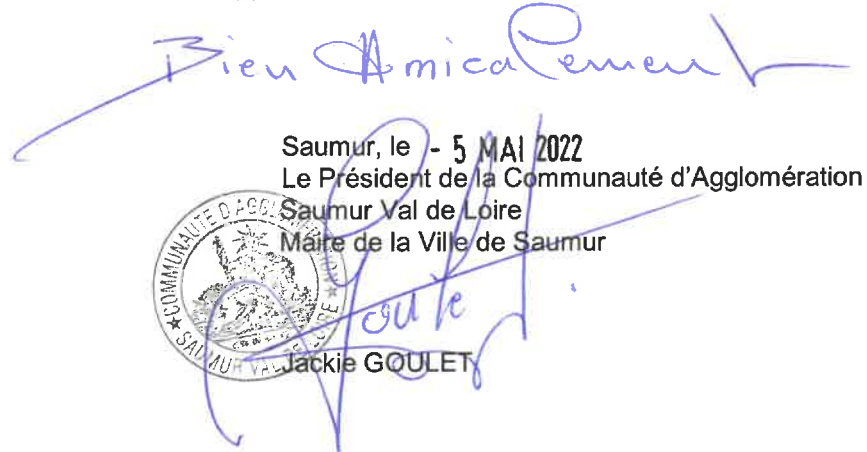 Bien Amicalement
Saumur, le - 5 MAI 2022
Le Président de la Communauté d'Agglomération
Saumur Val de Loire
Maire de la Ville de Saumur
★COMMUNAUTE D'AGGLOMERATION★
SAUMUR VAL DE LOIRE
Goulet
Jackie GOULET